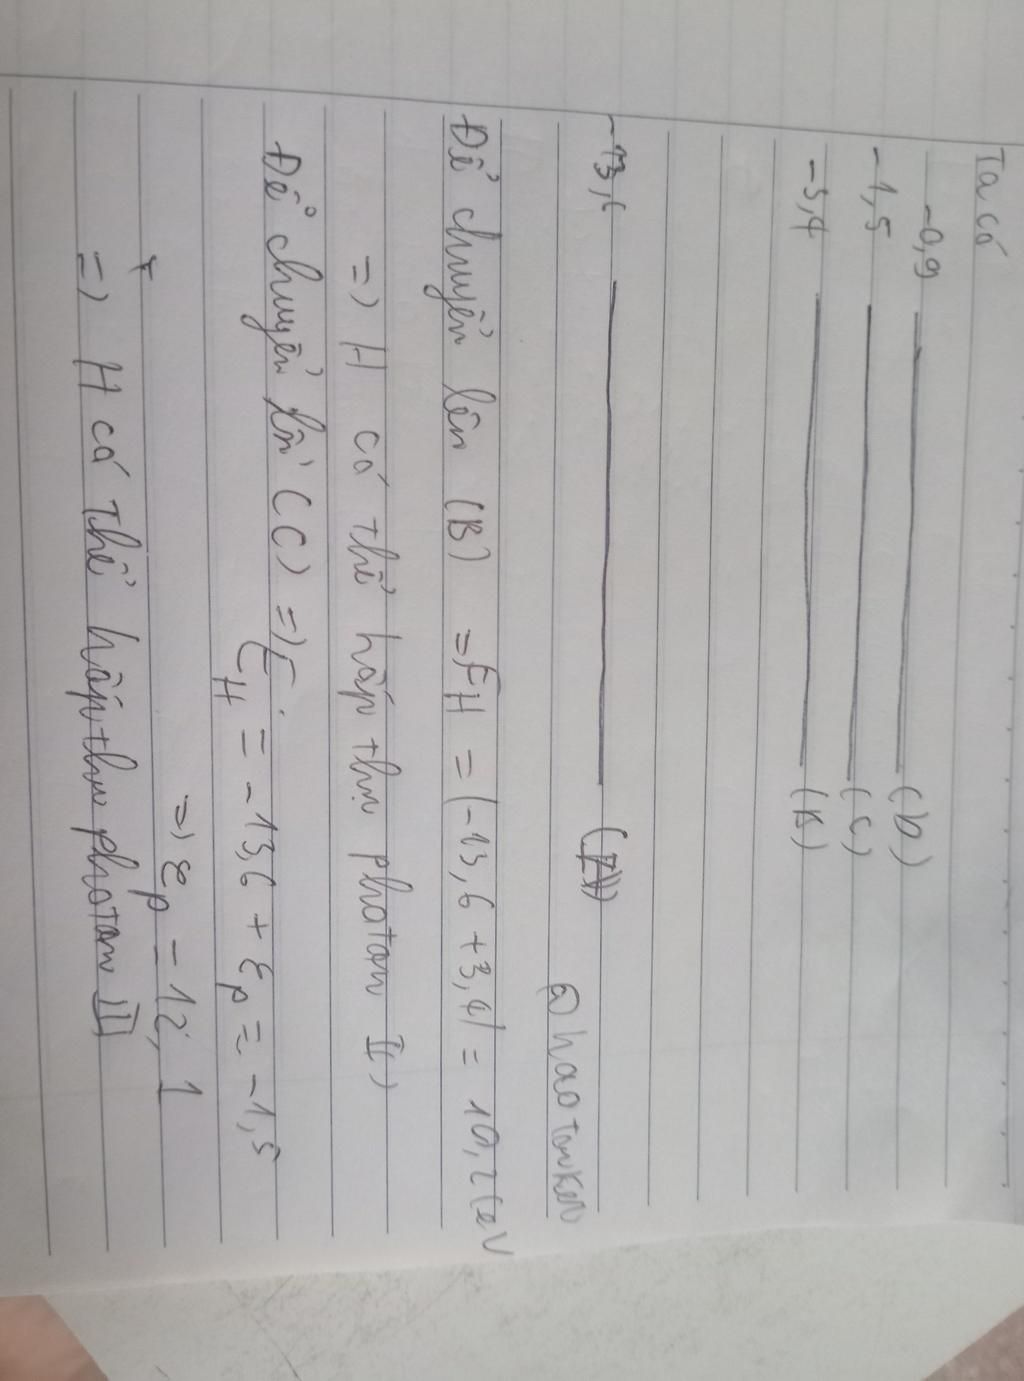 Ta có
-0,9 (D)
-1,5 (C)
-3,4 (B)
-13,6
@haotanker
Để chuyển lên (B) => EH = |-13,6 + 3,4| = 10,2 (eV
=> H có thể hấp thụ photon II)
Để chuyển lên (C) => EH = -13,6 + εp = -1,5
=> εp = 12,1
=> H có thể hấp thu photon III